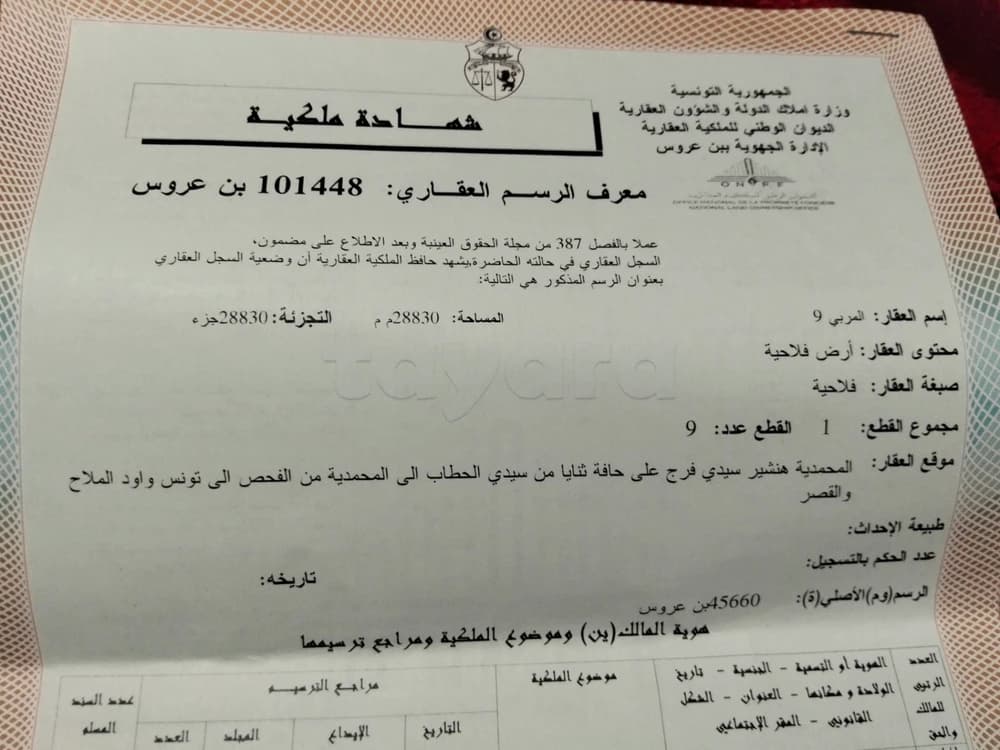 الجمهورية التونسية
وزارة املاك الدولة والشؤون العقارية
الديوان الوطني للملكية العقارية
الإدارة الجهوية ببن عروس
ONPF
OFFICE NATIONAL DE LA PROPRIETE FONCIERE
NATIONAL LAND OWNERSHIP OFFICE
شهـــادة ملكيـــة
معرف الرسـم العقـــاري: 101448 بن عروس
عملا بالفصل 387 من مجلة الحقوق العينية وبعد الاطلاع على مضمون،
السجل العقاري في حالته الحاضرة،يشهد حافظ الملكية العقارية أن وضعية السجل العقاري
بعنوان الرسم المذكور هي التالية:
إسم العقار: المربي 9 المساحة: 28830م م التجزئة: 28830جزء
محتوى العقار: أرض فلاحية
صبغة العقار: فلاحية
مجموع القطع: 1 القطع عدد: 9
موقع العقار: المحمدية هنشير سيدي فرج على حافة ثنايا من سيدي الحطاب الى المحمدية من الفحص الى تونس واود الملاح
والقصر
طبيعة الإحداث:
عدد الحكم بالتسجيل: تاريخه:
الرسم(وم)الأصلي(ة): 45660بن عروس
هوية المالك(ين) وموضوع الملكية ومراجع ترسيمها
العدد الرتبي للمالك والحق
الهوية أو التسمية - الجنسية - تاريخ
الولادة ومكانها - العنوان - الشكل
القانوني - المقر الإجتماعي
موضوع الملكية
مراجع الترسيم
التاريخ الإيداع المجلد العدد
عدد السند
المسلم
tayara